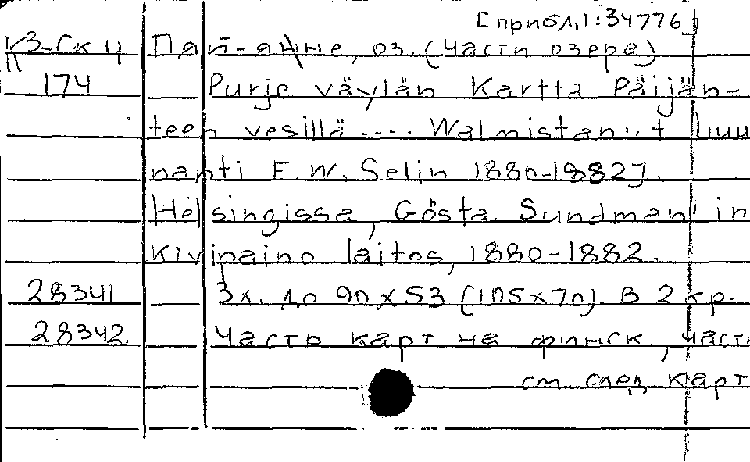 [прибл. 1:34776]
К3-Ск Ц Пяй-янне, оз. (Части озера)
174 Purje väylän Kartta Päijän-
teen vesillä .... Walmistanut luu
nanti E. W. Selin 1880-1882].
Helsingissä, Gösta Sundman'in
Kivipaino laitos, 1880-1882.
28341 3л. до 90x53 (105x70). В 2 кр.
28342 Часть карт на финск, част
см след карт